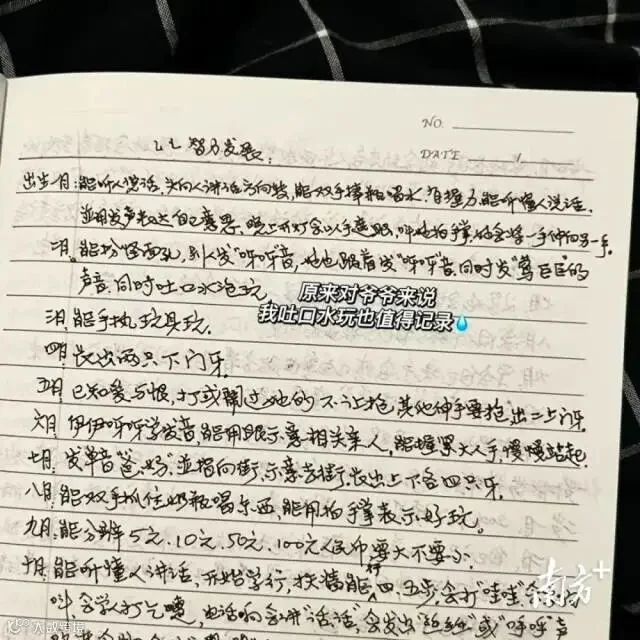 NO.
DATE
智力发展:
出生一月:能听人说话,头向人讲话方向转,能双手捧瓶喝水,有握力,能听懂人说话.
并用发声表达自己意思,晚上开灯会以手遮眼,叫她拍掌,她会将一手伸向另一手。
二月。能扮怪面孔,别人发"呀呀"音,她也跟着发"呀呀"音,同时发的
声音,同时吐口水泡玩
原来对爷爷来说
我吐口水玩也值得记录💧
三月.能手执玩具玩.
四月 长出两只下门牙
五月.已知爱与恨,打或闹过她的不让抱,其他伸手要抱 出二上门牙
六月.伊伊呀呀学发音,能用眼示意相关亲人,能握紧大人手,慢慢站起.
七月.发单音"爸、妈"並指向街,示意去街,长出上下各四只牙.
八月.能双手抓住奶瓶喝东西,能用拍手掌表示好玩。
九月.能分辨5元、10元、50元、100元人民币 要大不要小.
十月.能听懂人讲话,开始学行,扶墙能行四、五步,会打"哇哇"
叫,会学人打乞嚏,电话响会讲"话话",会发出或"呼呼"
南方+